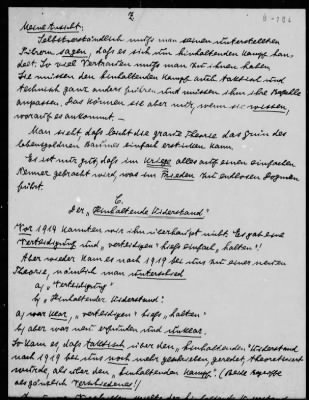 2
B-786
Meine Ansicht:
Selbstverständlich muss man seinen unterstellten
Führern sagen, dass es sich um hinhaltenden Kampf han-
delt. So viel Vertrauen muss man zu ihnen haben.
Sie müssen den hinhaltenden Kampf auch taktisch und
technisch ganz anders führen und müssen ihm ihre Befehle
anpassen. Das können sie aber nur, wenn sie wissen,
worauf es ankommt. –
Man sieht, dass leicht die graue Theorie das Grün des
lebensgoldnen Baumes einfach ersticken kann.
Es ist nur gut, dass im Kriege alles auf einen einfachen
Nenner gebracht wird, was im Frieden zu endlosen Dogmen
führt.
C.
Der „Hinhaltende Widerstand"
Vor 1914 kannten wir ihn überhaupt nicht. Es gab eine
Verteidigung und „verteidigen" hiess einfach „halten"!
Aber weder kam es nach 1919 bei uns zu einer neuen
Theorie, nämlich man unterschied
a) „Verteidigung"
b) „Hinhaltender Widerstand".
a) war klar, „verteidigen" hiess „halten"
b) aber war neu erfunden und unklar.
So kam es, dass taktisch über den „hinhaltenden" Widerstand
nach 1919 bei uns noch mehr geschrieben, geredet, theoretisiert
wurde, als über den „hinhaltenden Kampf". (Beide Begriffe
als gänzlich Verschiedenes!)